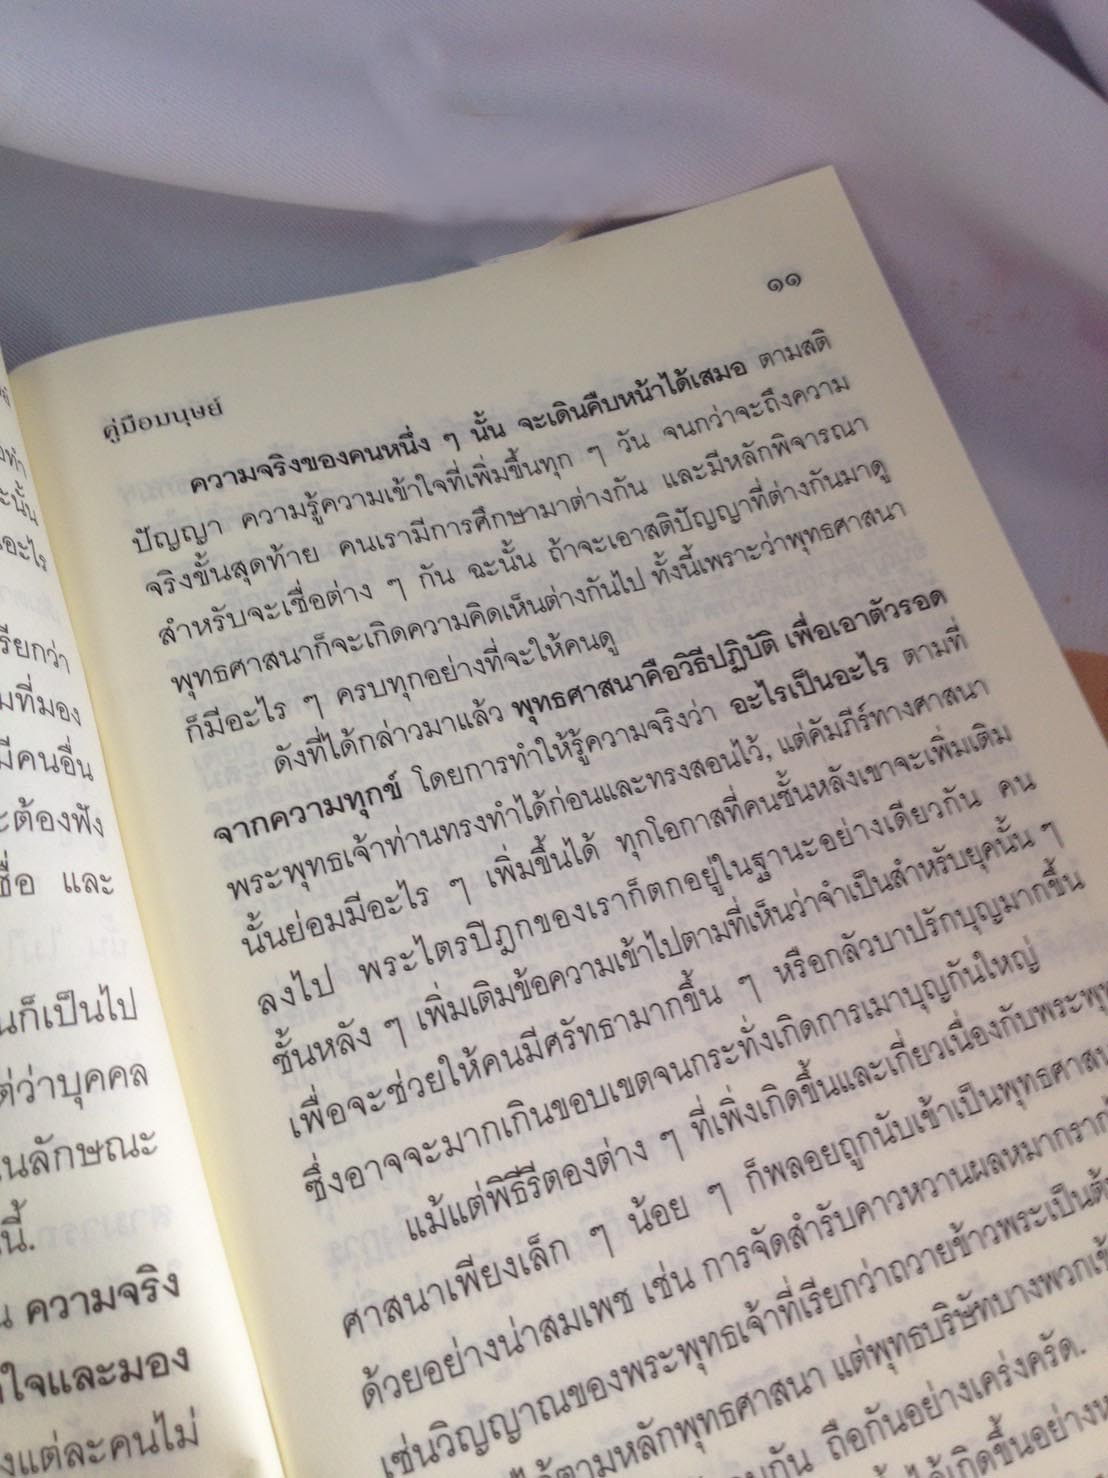 ทำ
ะนั้น
อะไร
รียกว่า
มที่มอง
มีคนอื่น
ะต้องฟัง
ชื่อ และ
นก็เป็นไป
ต่ว่าบุคคล
นลักษณะ
นี้.
น ความจริง
ใจและมอง
งแต่ละคนไม่
คู่มือมนุษย์
๑๑
ความจริงของคนหนึ่ง ๆ นั้น จะเดินคืบหน้าได้เสมอ ตามสติ
ปัญญา ความรู้ความเข้าใจที่เพิ่มขึ้นทุก ๆ วัน จนกว่าจะถึงความ
จริงขั้นสุดท้าย คนเรามีการศึกษามาต่างกัน และมีหลักพิจารณา
สำหรับจะเชื่อต่าง ๆ กัน ฉะนั้น ถ้าจะเอาสติปัญญาที่ต่างกันมาดู
พุทธศาสนาก็จะเกิดความคิดเห็นต่างกันไป ทั้งนี้เพราะว่าพุทธศาสนา
ก็มีอะไร ๆ ครบทุกอย่างที่จะให้คนดู
ดังที่ได้กล่าวมาแล้ว พุทธศาสนาคือวิธีปฏิบัติ เพื่อเอาตัวรอด
จากความทุกข์ โดยการทำให้รู้ความจริงว่า อะไรเป็นอะไร ตามที่
พระพุทธเจ้าท่านทรงทำได้ก่อนและทรงสอนไว้, แต่คัมภีร์ทางศาสนา
นั้นย่อมมีอะไร ๆ เพิ่มขึ้นได้ ทุกโอกาสที่คนชั้นหลังเขาจะเพิ่มเติม
ลงไป พระไตรปิฎกของเราก็ตกอยู่ในฐานะอย่างเดียวกัน คน
ชั้นหลัง ๆ เพิ่มเติมข้อความเข้าไปตามที่เห็นว่าจำเป็นสำหรับยุคนั้น ๆ
เพื่อจะช่วยให้คนมีศรัทธามากขึ้น ๆ หรือกลัวบาปรักบุญมากขึ้น
ซึ่งอาจจะมากเกินขอบเขตจนกระทั่งเกิดการเมาบุญกันใหญ่
แม้แต่พิธีรีตองต่าง ๆ ที่เพิ่งเกิดขึ้นและเกี่ยวเนื่องกับพระพุท
ศาสนาเพียงเล็ก ๆ น้อย ๆ ก็พลอยถูกนับเข้าเป็นพุทธศาส
ด้วยอย่างน่าสมเพช เช่น การจัดสำรับคาวหวานผลหมากราก
เซ่นวิญญาณของพระพุทธเจ้าที่เรียกว่าถวายข้าวพระเป็นต้
ได้ตามหลักพุทธศาสนา แต่พุทธบริษัทบางพวกเข้
กัน ถือกันอย่างเคร่งครัด.
ได้เกิดขึ้นอย่าง